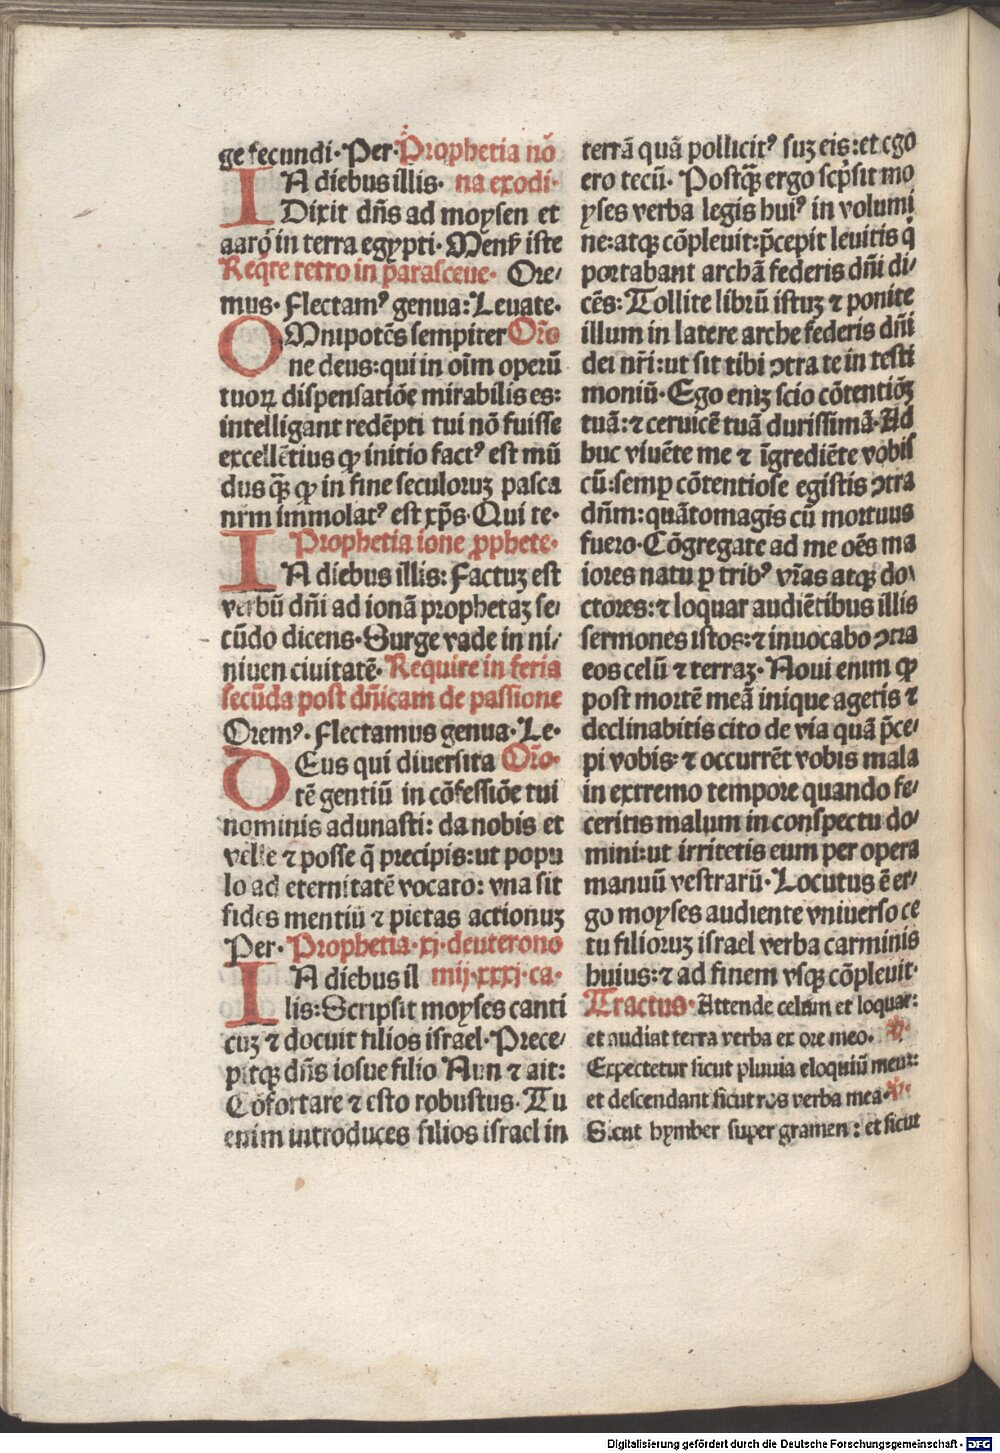 ge fecundi· Per· Prophetia nō
IN diebus illis· na exodi·
Dixit dn̄s ad moysen et
aarō in terra egypti· Menẜ iste
Reqͥre retro in parasceue· Ore⸗
mus· Flectamꝰ genua: Leuate·
OMnipotēs sempiter Orō
ne deus: qui in oīm operū
tuoꝝ dispensatiōe mirabilis es:
intelligant redēpti tui nō fuisse
excellētius ꝙ initio factꝰ est mū
dus qͣꝫ ꝙ in fine seculoruꝫ pasca
nrm̄ immolatꝰ est xp̄s· Qui te·
Prophetia ione ꝓphete·
IN diebus illis: Factuꝫ est
verbū dn̄i ad ionā prophetaꝫ se⸗
cūdo dicens· Surge vade in ni⸗
niuen ciuitatē· Require in feria
secūda post dn̄icam de passione
Oremꝰ· Flectamus genua· Le·
DEus qui diuersita Orō·
tē gentiū in cōfessiōe tui
nominis adunasti: da nobis et
velle ⁊ posse q̄ precipis: ut popu
lo ad eternitatē vocato: vna sit
fides mentiū ⁊ pietas actionuꝫ
Per· Prophetia·xj·deuterono
IN diebus il mij·xxxj·ca·
lis: Scripsit moyses canti
cuꝫ ⁊ docuit filios israel· Prece⸗
pitqꝫ dn̄s iosue filio Nun ⁊ ait:
Cōfortare ⁊ esto robustus· Tu
enim introduces filios israel in
terrā quā pollicitꝰ suꝫ eis: et ego
ero tecū· Postqͣꝫ ergo scp̄sit mo
yses verba legis huiꝰ in volumi
ne: atqꝫ cōpleuit: p̄cepit leuitis qͥ
portabant archā federis dn̄i di⸗
cēs: Tollite librū istuꝫ ⁊ ponite
illum in latere arche federis dn̄i
dei nr̄i: ut sit tibi ↄtra te in testi
moniū· Ego eniꝫ scio cōtentiōꝫ
tuā: ⁊ ceruicē tuā durissimā· Ad
huc viuēte me ⁊ īgrediēte vobis
cū: semꝑ cōtentiose egistis ↄtra
dn̄m: quātomagis cū mortuus
fuero· Cōgregate ad me oēs ma
iores natu ꝑ tribꝰ vr̄as atqꝫ do⸗
ctores: ⁊ loquar audiētibus illis
sermones istos: ⁊ inuocabo ↄtra
eos celū ⁊ terraꝫ· Noui enim ꝙ
post mortē meā inique agetis ⁊
declinabitis cito de via quā p̄ce⸗
pi vobis· ⁊ occurrēt vobis mala
in extremo tempore quando fe⸗
ceritis malum in conspectu do⸗
mini: ut irritetis eum per opera
manuū vestrarū· Locutus ē er⸗
go moyses audiente vniuerso ce
tu filioruꝫ israel verba carminis
huius: ⁊ ad finem vsqꝫ cōpleuit·
Tractus· Attende celum et loquar:
et audiat terra verba ex ore meo· ℣·
Expectetur sicut pluuia eloquiū meuꝫ:
et descendant sicut ros verba mea· ℣·
Sicut hymber super gramen: et sicut
Digitalisierung gefördert durch die Deutsche Forschungsgemeinschaft - DFG